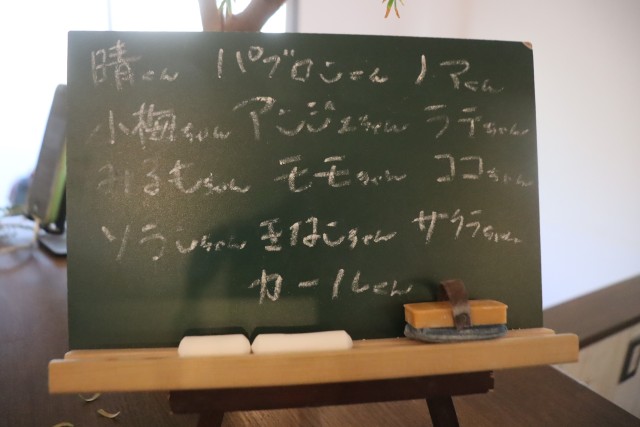 晴くん パブロンくん ノアくん
小梅ちゃん アンジェちゃん ラテちゃん
みるもちゃん モモちゃん ココちゃん
ソランちゃん きなこちゃん サクラちゃん
カールくん